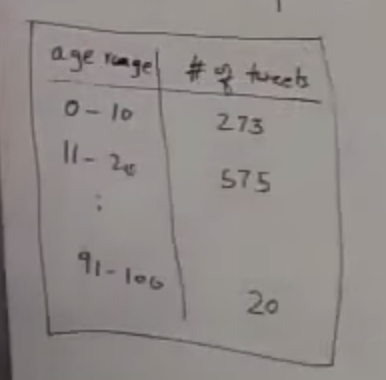 age range # of tweets
0-10 273
11-20 575
:
91-100 20